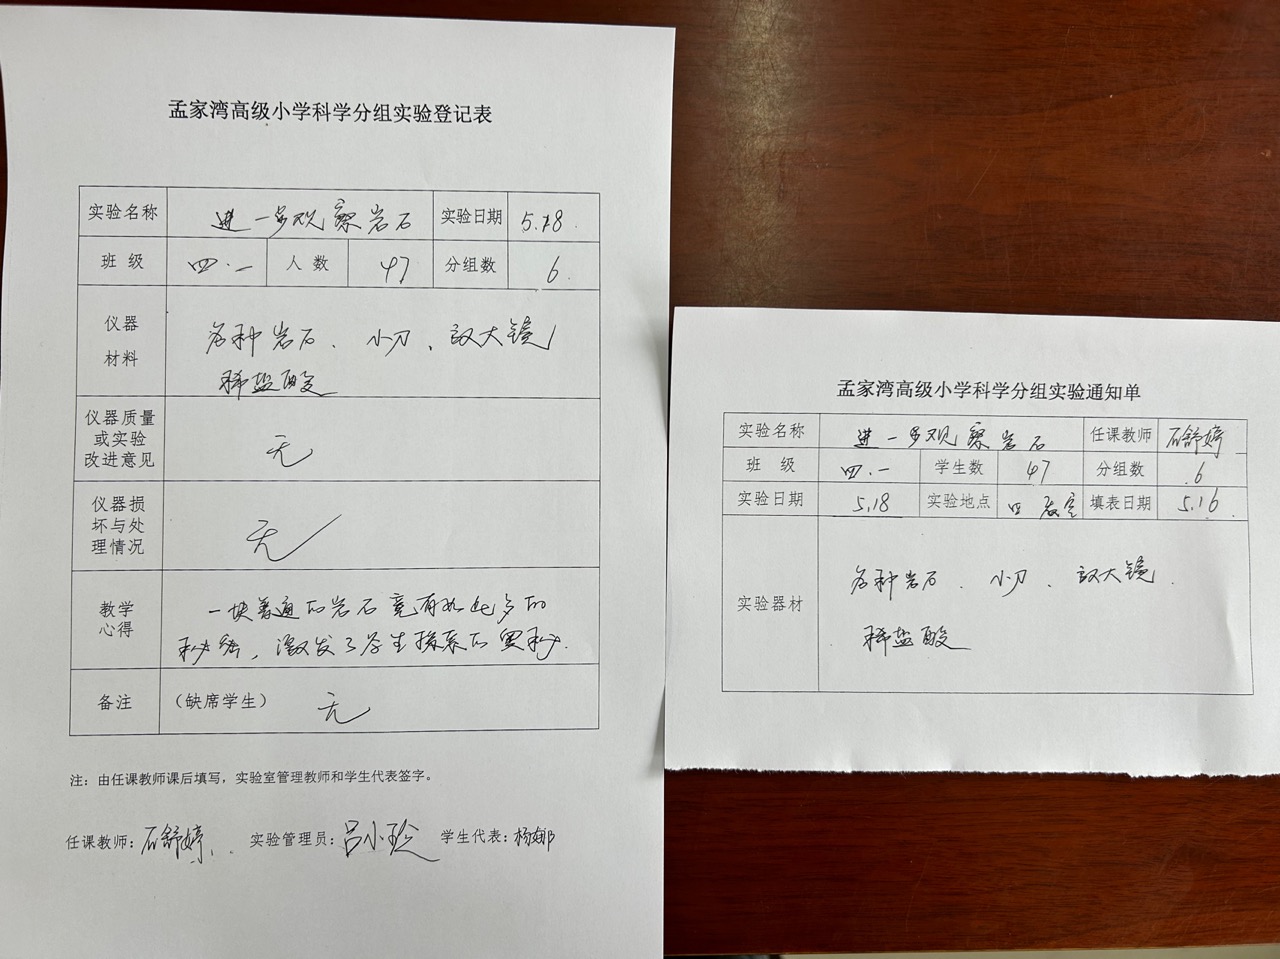 孟家湾高级小学科学分组实验登记表
实验名称 进一步观察岩石 实验日期 5.18.
班 级 四.一 人 数 47 分组数 6.
仪器
材料
各种岩石、小刀、放大镜
稀盐酸
仪器质量
或实验
改进意见
无
仪器损
坏与处
理情况
无
教学
心得
一块普通的岩石竟有如此多的
秘密,激发了学生探索的奥秘.
备注 (缺席学生) 无
注:由任课教师课后填写,实验室管理教师和学生代表签字。
任课教师:石舒婷. 实验管理员:吕小玲 学生代表:杨娜
孟家湾高级小学科学分组实验通知单
实验名称 进一步观察岩石 任课教师 石舒婷
班 级 四.一 学生数 47 分组数 6
实验日期 5.18 实验地点 四 教室 填表日期 5.16
实验器材
各种岩石、小刀、放大镜.
稀盐酸